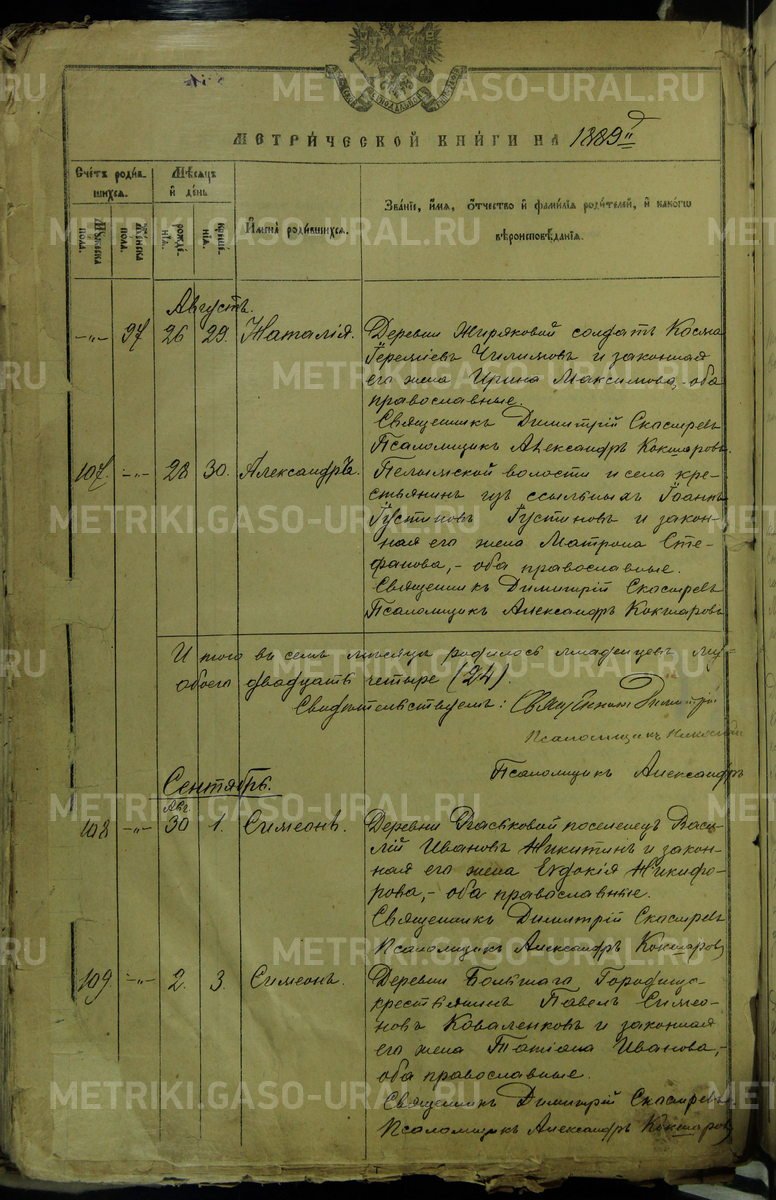 МЕТРИ́ЧЕСКОЙ КНИ́ГИ НА 1889 й
Счетъ роди́в
шихся.
Мѣсяцъ
и де́нь
И҆мена̀ роди́вшихся.
Зва́нїе, и҆́мѧ, ѻ҆́тчество и҆ фами́лїѧ роди́телей, и҆ како́гѡ
вѣроисповѣ́данїѧ.
Мꙋжеска
пола.
Же́нска
по́ла.
рожде́
нїѧ.
креще́
нїѧ.
Августъ.
-"- 97 26 29. Наталія. Деревни Жиряковой солдатъ Косма
Іереміевъ Чилимовъ и законная
его жена Ирина Максимова, - оба
православные.
Священникъ Димитрій Скосыревъ
Псаломщикъ Александръ Кокшаровъ
107. -"- 28 30. Александръ. Пелымской волости и села кре-
стьянинъ изъ ссыльныхъ Іоаннъ
Іустиновъ Іустиновъ и закон-
ная его жена Матрона Сте-
фанова, - оба православные.
Священникъ Димитрій Скосыревъ
Псаломщикъ Александръ Кокшаровъ
Итого въ семъ мѣсяцѣ родилось младенцевъ
обоего двадцать четыре (24).
Свидѣтельствуемъ: Священникъ Димитрій
Псаломщикъ
Псаломщикъ Александръ
Сентябрь.
Авг.
108 -"- 30 1. Симеонъ. Деревни поселенецъ Васи-
лій Ивановъ Никитинъ и закон-
ная его жена Евдокія Никифо-
рова, - оба православные.
Священникъ Димитрій Скосыревъ
Псаломщикъ Александръ Кокшаровъ
109 -"- 2. 3. Симеонъ. Деревни Большаго Городища
крестьянинъ Павелъ Симео-
новъ Коваленковъ и законная
его жена Татіана Иванова, -
оба православные.
Священникъ Димитрій Скосыревъ
Псаломщикъ Александръ Кокшаровъ
METRIKI.GASO-URAL.RU